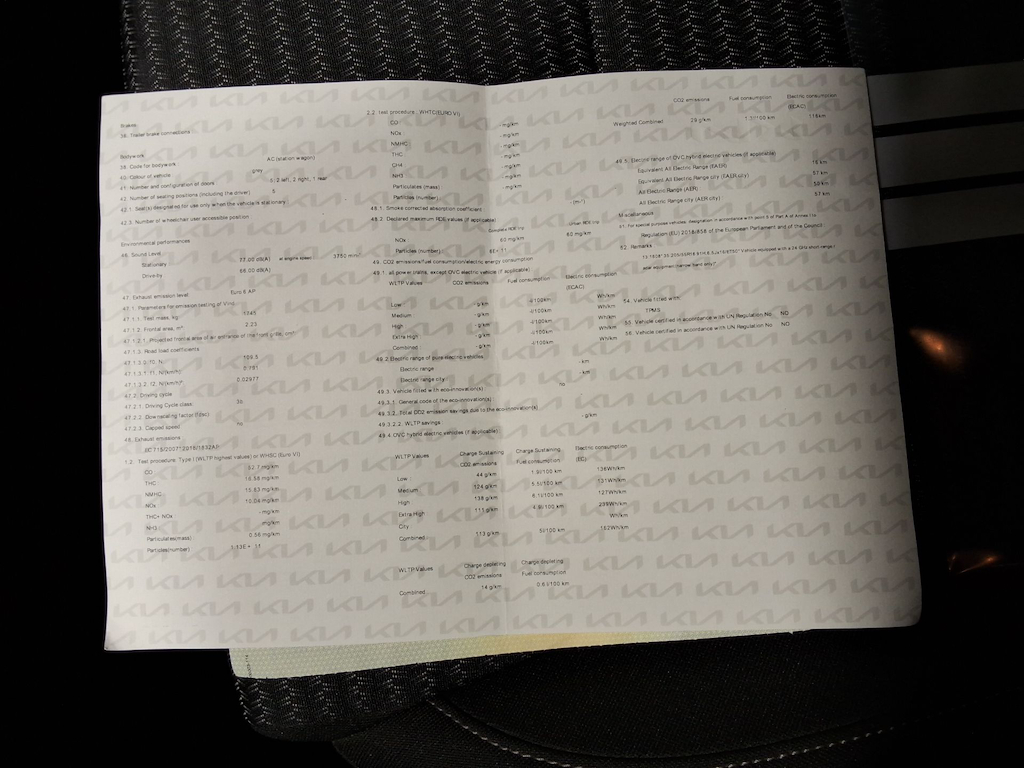 Brakes
36. Trailer brake connections
Bodywork
38. Code for bodywork AC (station wagon)
40. Colour of vehicle grey
41. Number and configuration of doors 5, 2 left, 2 right, 1 rear
42. Number of seating positions (including the driver) 5
42.1. Seat(s) designated for use only when the vehicle is stationary
42.3. Number of wheelchair user accessible position
Environmental performances
46. Sound Level
Stationary 77.00 dB(A) at engine speed 3750 min⁻¹
Drive-by 66.00 dB(A)
47. Exhaust emission level Euro 6 AP
47.1. Parameters for emission testing of Vind
47.1.1. Test mass, kg 1745
47.1.2. Frontal area, m² 2.23
47.1.2.1. Projected frontal area of air entrance of the front grille, cm²
47.1.3. Road load coefficients
47.1.3.0. f0, N 109.5
47.1.3.1. f1, N/(km/h) 0.791
47.1.3.2. f2, N/(km/h)² 0.02977
47.2. Driving cycle
47.2.1. Driving Cycle class 3b
47.2.2. Downscaling factor (fdsc)
47.2.3. Capped speed no
48. Exhaust emissions
EC 715/2007*2018/1832AP
1.2. Test procedure: Type I (WLTP highest values) or WHSC (Euro VI)
CO 62.7 mg/km
THC 16.58 mg/km
NMHC 15.63 mg/km
NOx 10.04 mg/km
THC+ NOx - mg/km
NH3 - mg/km
Particulates(mass) 0.56 mg/km
Particles(number) 1.13E+ 11
2.2. Test procedure : WHTC(EURO VI)
CO - mg/km
NOx - mg/km
NMHC - mg/km
THC - mg/km
CH4 - mg/km
NH3 - mg/km
Particulates (mass) - mg/km
Particles (number)
48.1. Smoke corrected absorption coefficient - (m⁻¹)
48.2. Declared maximum RDE values (if applicable)
Complete RDE trip Urban RDE trip
NOx 60 mg/km 60 mg/km
Particles (number) 6E+ 11
49. CO2 emissions/fuel consumption/electric energy consumption
49.1. all power trains, except OVC electric vehicle (if applicable)
WLTP Values CO2 emissions Fuel consumption Electric consumption
(ECAC)
Low - g/km -l/100km Wh/km
Medium - g/km -l/100km Wh/km
High - g/km -l/100km Wh/km
Extra High - g/km -l/100km Wh/km
Combined - g/km -l/100km Wh/km
49.2 Electric range of pure electric vehicles
Electric range - km
Electric range city - km
49.3. Vehicle fitted with eco-innovation(s) no
49.3.1. General code of the eco-innovation(s)
49.3.2. Total CO2 emission savings due to the eco-innovation(s)
49.3.2.2. WLTP savings - g/km
49.4. OVC hybrid electric vehicles (if applicable)
WLTP Values Charge Sustaining Charge Sustaining Electric consumption
CO2 emissions Fuel consumption (EC)
Low 44 g/km 1.9l/100 km 136Wh/km
Medium 124 g/km 5.5l/100 km 131Wh/km
High 138 g/km 6.1l/100 km 127Wh/km
Extra High 111 g/km 4.9l/100 km 289Wh/km
City Wh/km
Combined 113 g/km 5l/100 km 182Wh/km
WLTP Values Charge depleting Charge depleting
CO2 emissions Fuel consumption
Combined 14 g/km 0.6l/100 km
CO2 emissions Fuel consumption Electric consumption
(ECAC)
Weighted Combined 29 g/km 1.3l/100 km
49.5. Electric range of OVC hybrid electric vehicles (if applicable)
Equivalent All Electric Range (EAER)
Equivalent All Electric Range city (EAER city) 57 km
All Electric Range (AER) 50 km
All Electric Range city (AER city) 57 km
Miscellaneous
51. For special purpose vehicles: designation in accordance with point 5 of Part A of Annex I to
Regulation (EU) 2018/858 of the European Parliament and of the Council
52. Remarks
"Vehicle equipped with a 24 GHz short-range
radar equipment/narrow band only"
54. Vehicle fitted with
TPMS
55. Vehicle certified in accordance with UN Regulation No. NO
56. Vehicle certified in accordance with UN Regulation No. NO